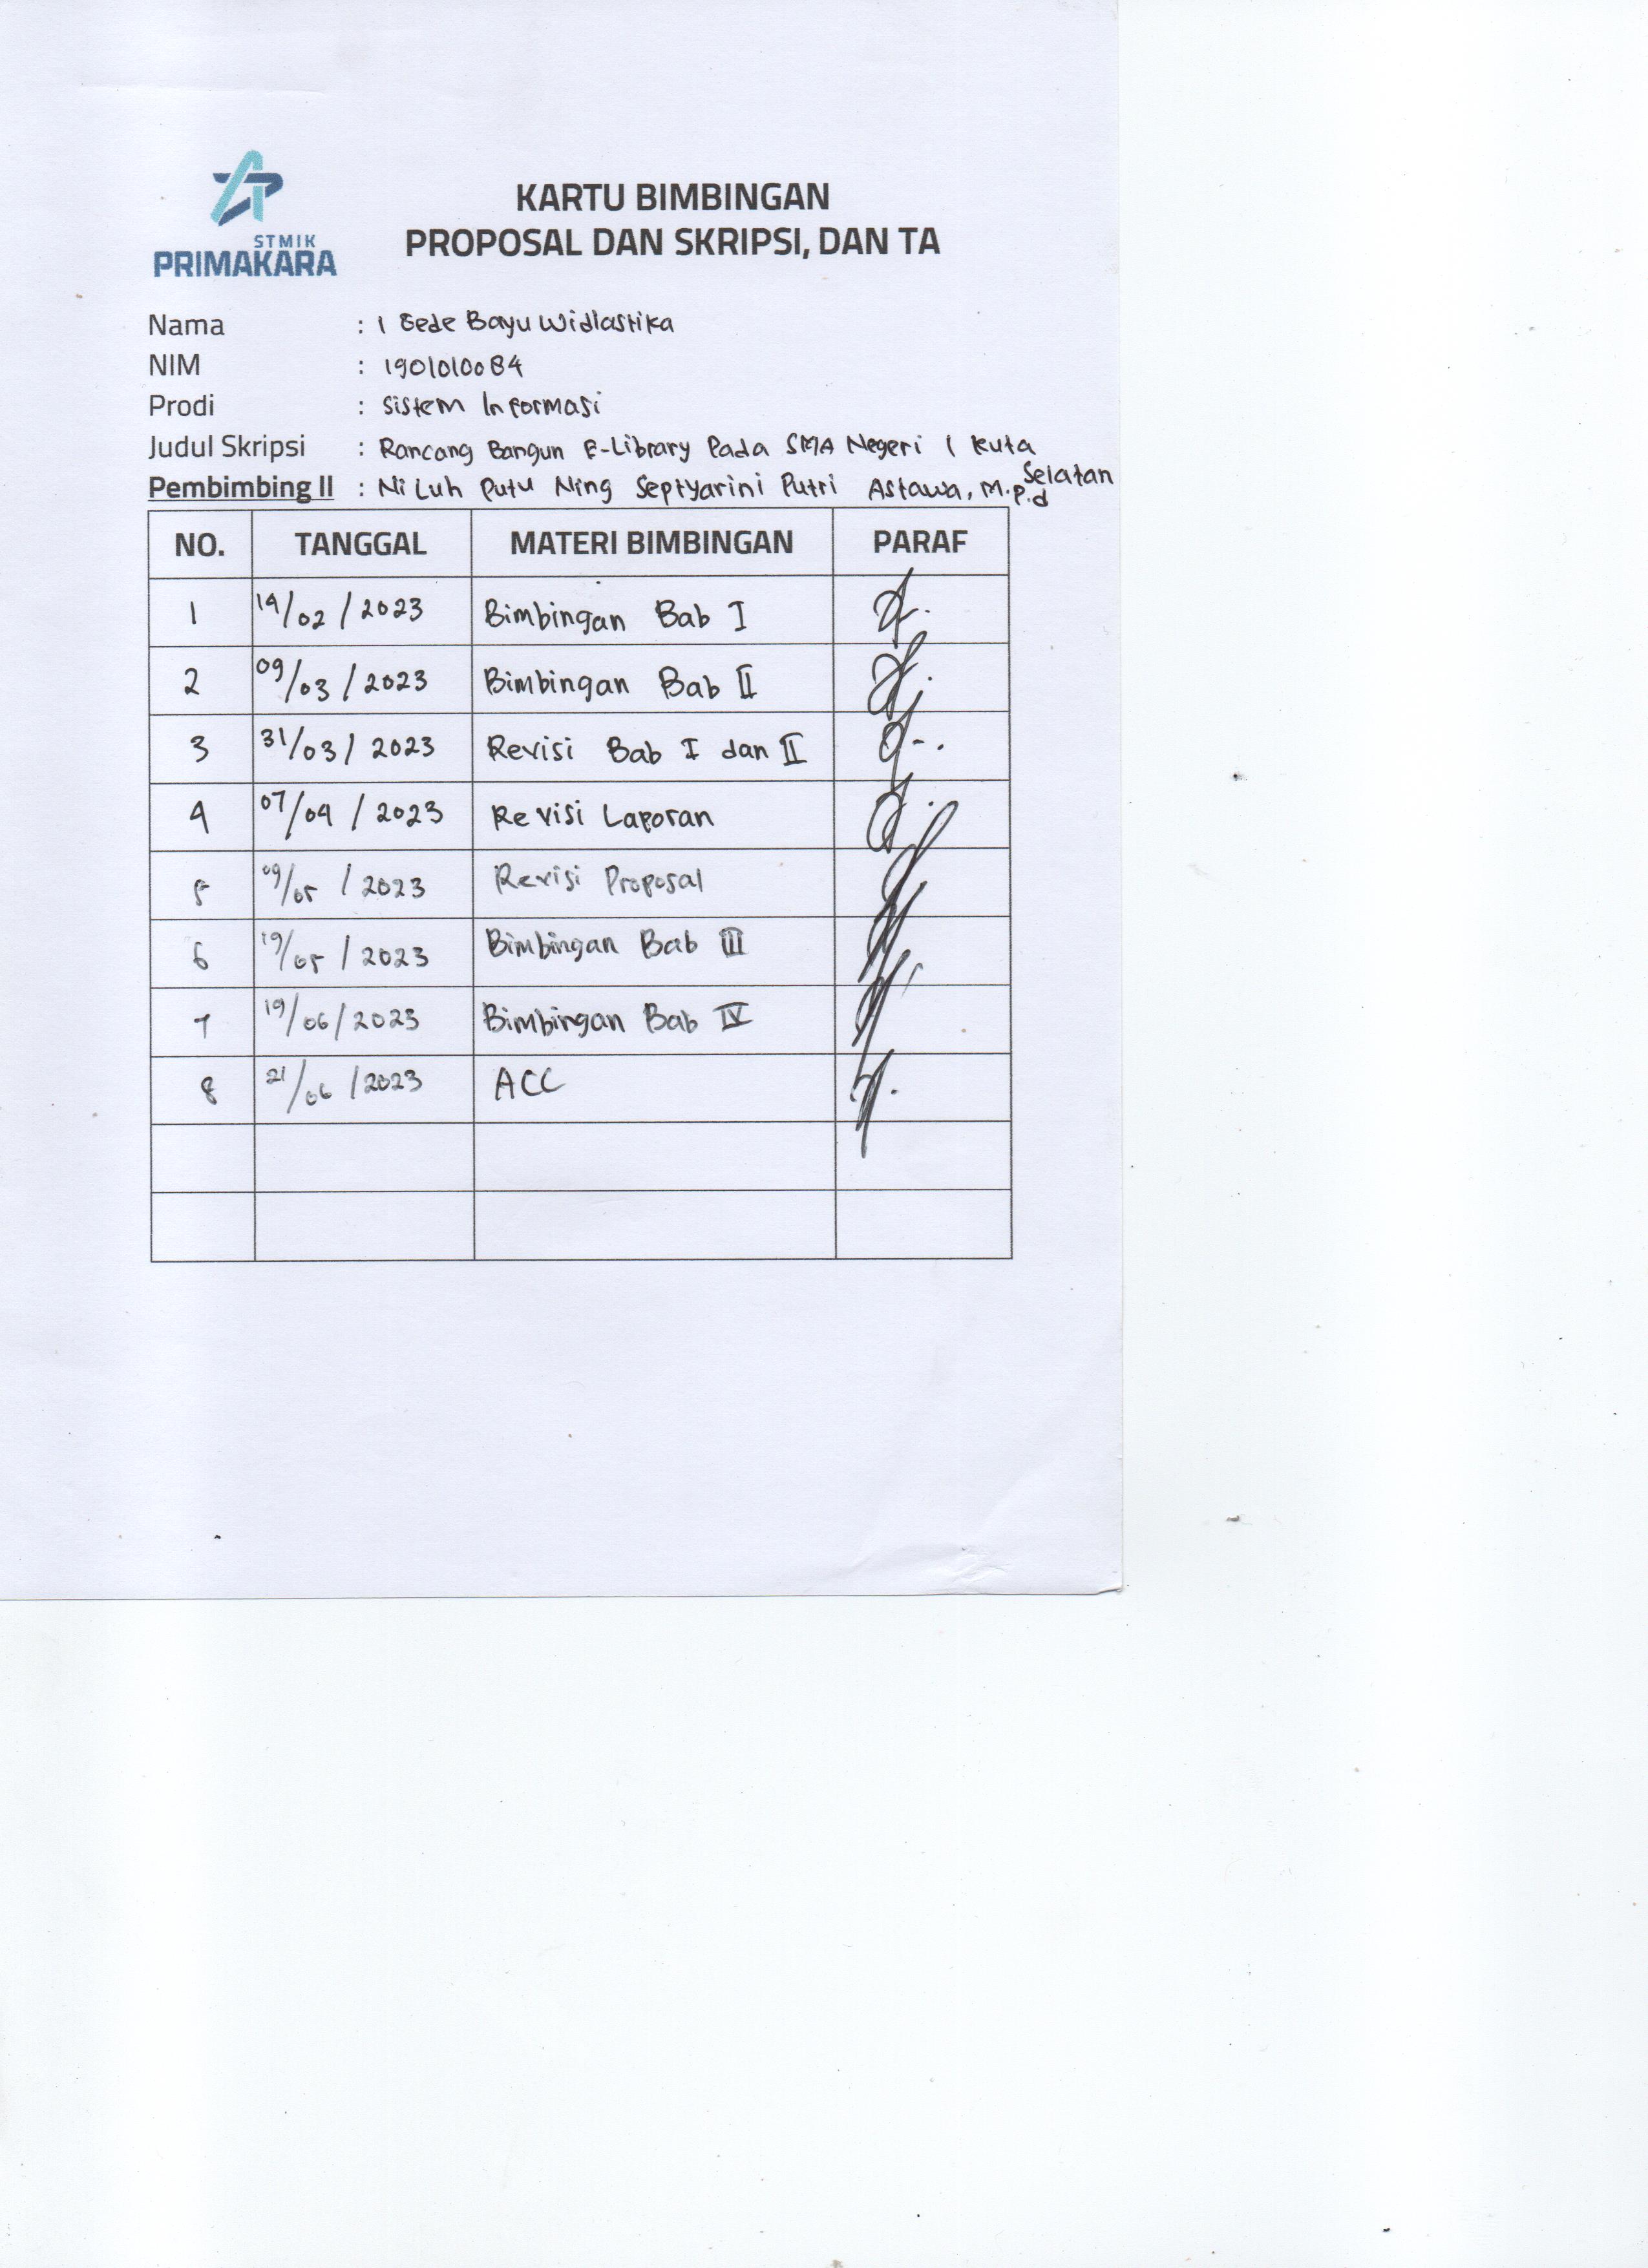 STMIK
PRIMAKARA
KARTU BIMBINGAN
PROPOSAL DAN SKRIPSI, DAN TA
Nama : I Gede Bayu Widiastika
NIM : 1901010084
Prodi : Sistem Informasi
Judul Skripsi : Rancang Bangun E-Library Pada SMA Negeri 1 Kuta Selatan
Pembimbing II : Ni Luh Putu Ning Septyarini Putri Astawa, M.P.d
NO. TANGGAL MATERI BIMBINGAN PARAF
1 14/02/2023 Bimbingan Bab I
2 09/03/2023 Bimbingan Bab II
3 31/03/2023 Revisi Bab I dan II
4 07/04/2023 Revisi Laporan
5 09/05/2023 Revisi Proposal
6 19/05/2023 Bimbingan Bab III
7 19/06/2023 Bimbingan Bab IV
8 21/06/2023 ACC